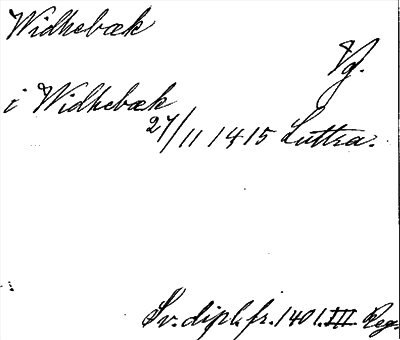 Widhebæk
Vg.
i Widhebæk
27/11 1415 Luttra.
Sv. dipl. fr. 1401. III Reg.